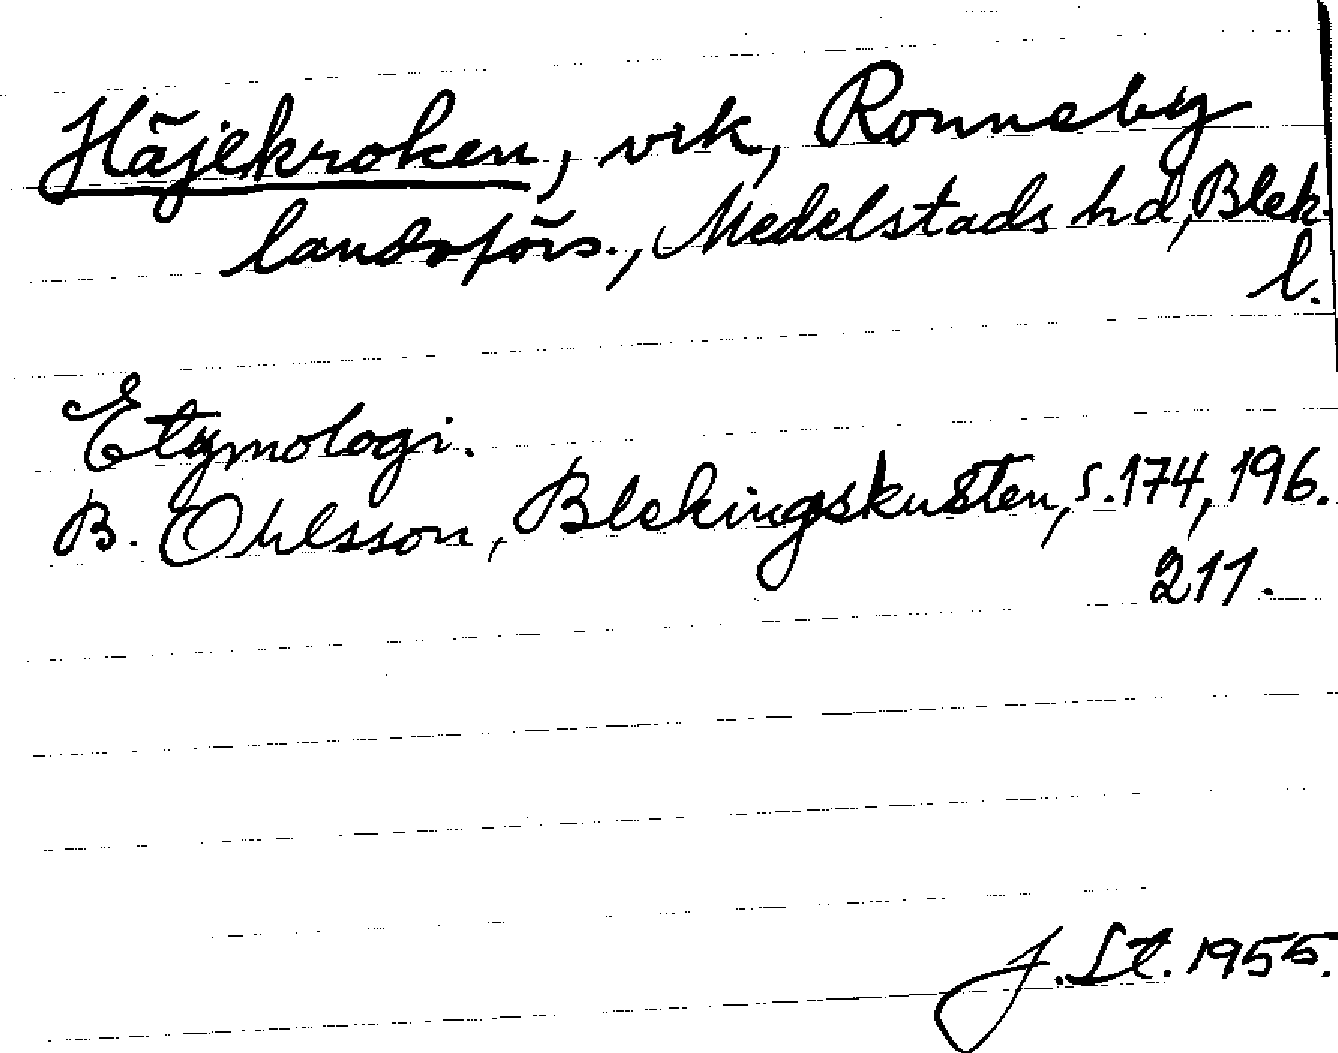 Häjekroken, vik, Ronneby
landsförs., Medelstads hd, Blek.
l.
Etymologi.
B. Ohlsson, Blekingskusten, s. 174, 196.
211.
J. St. 1955.